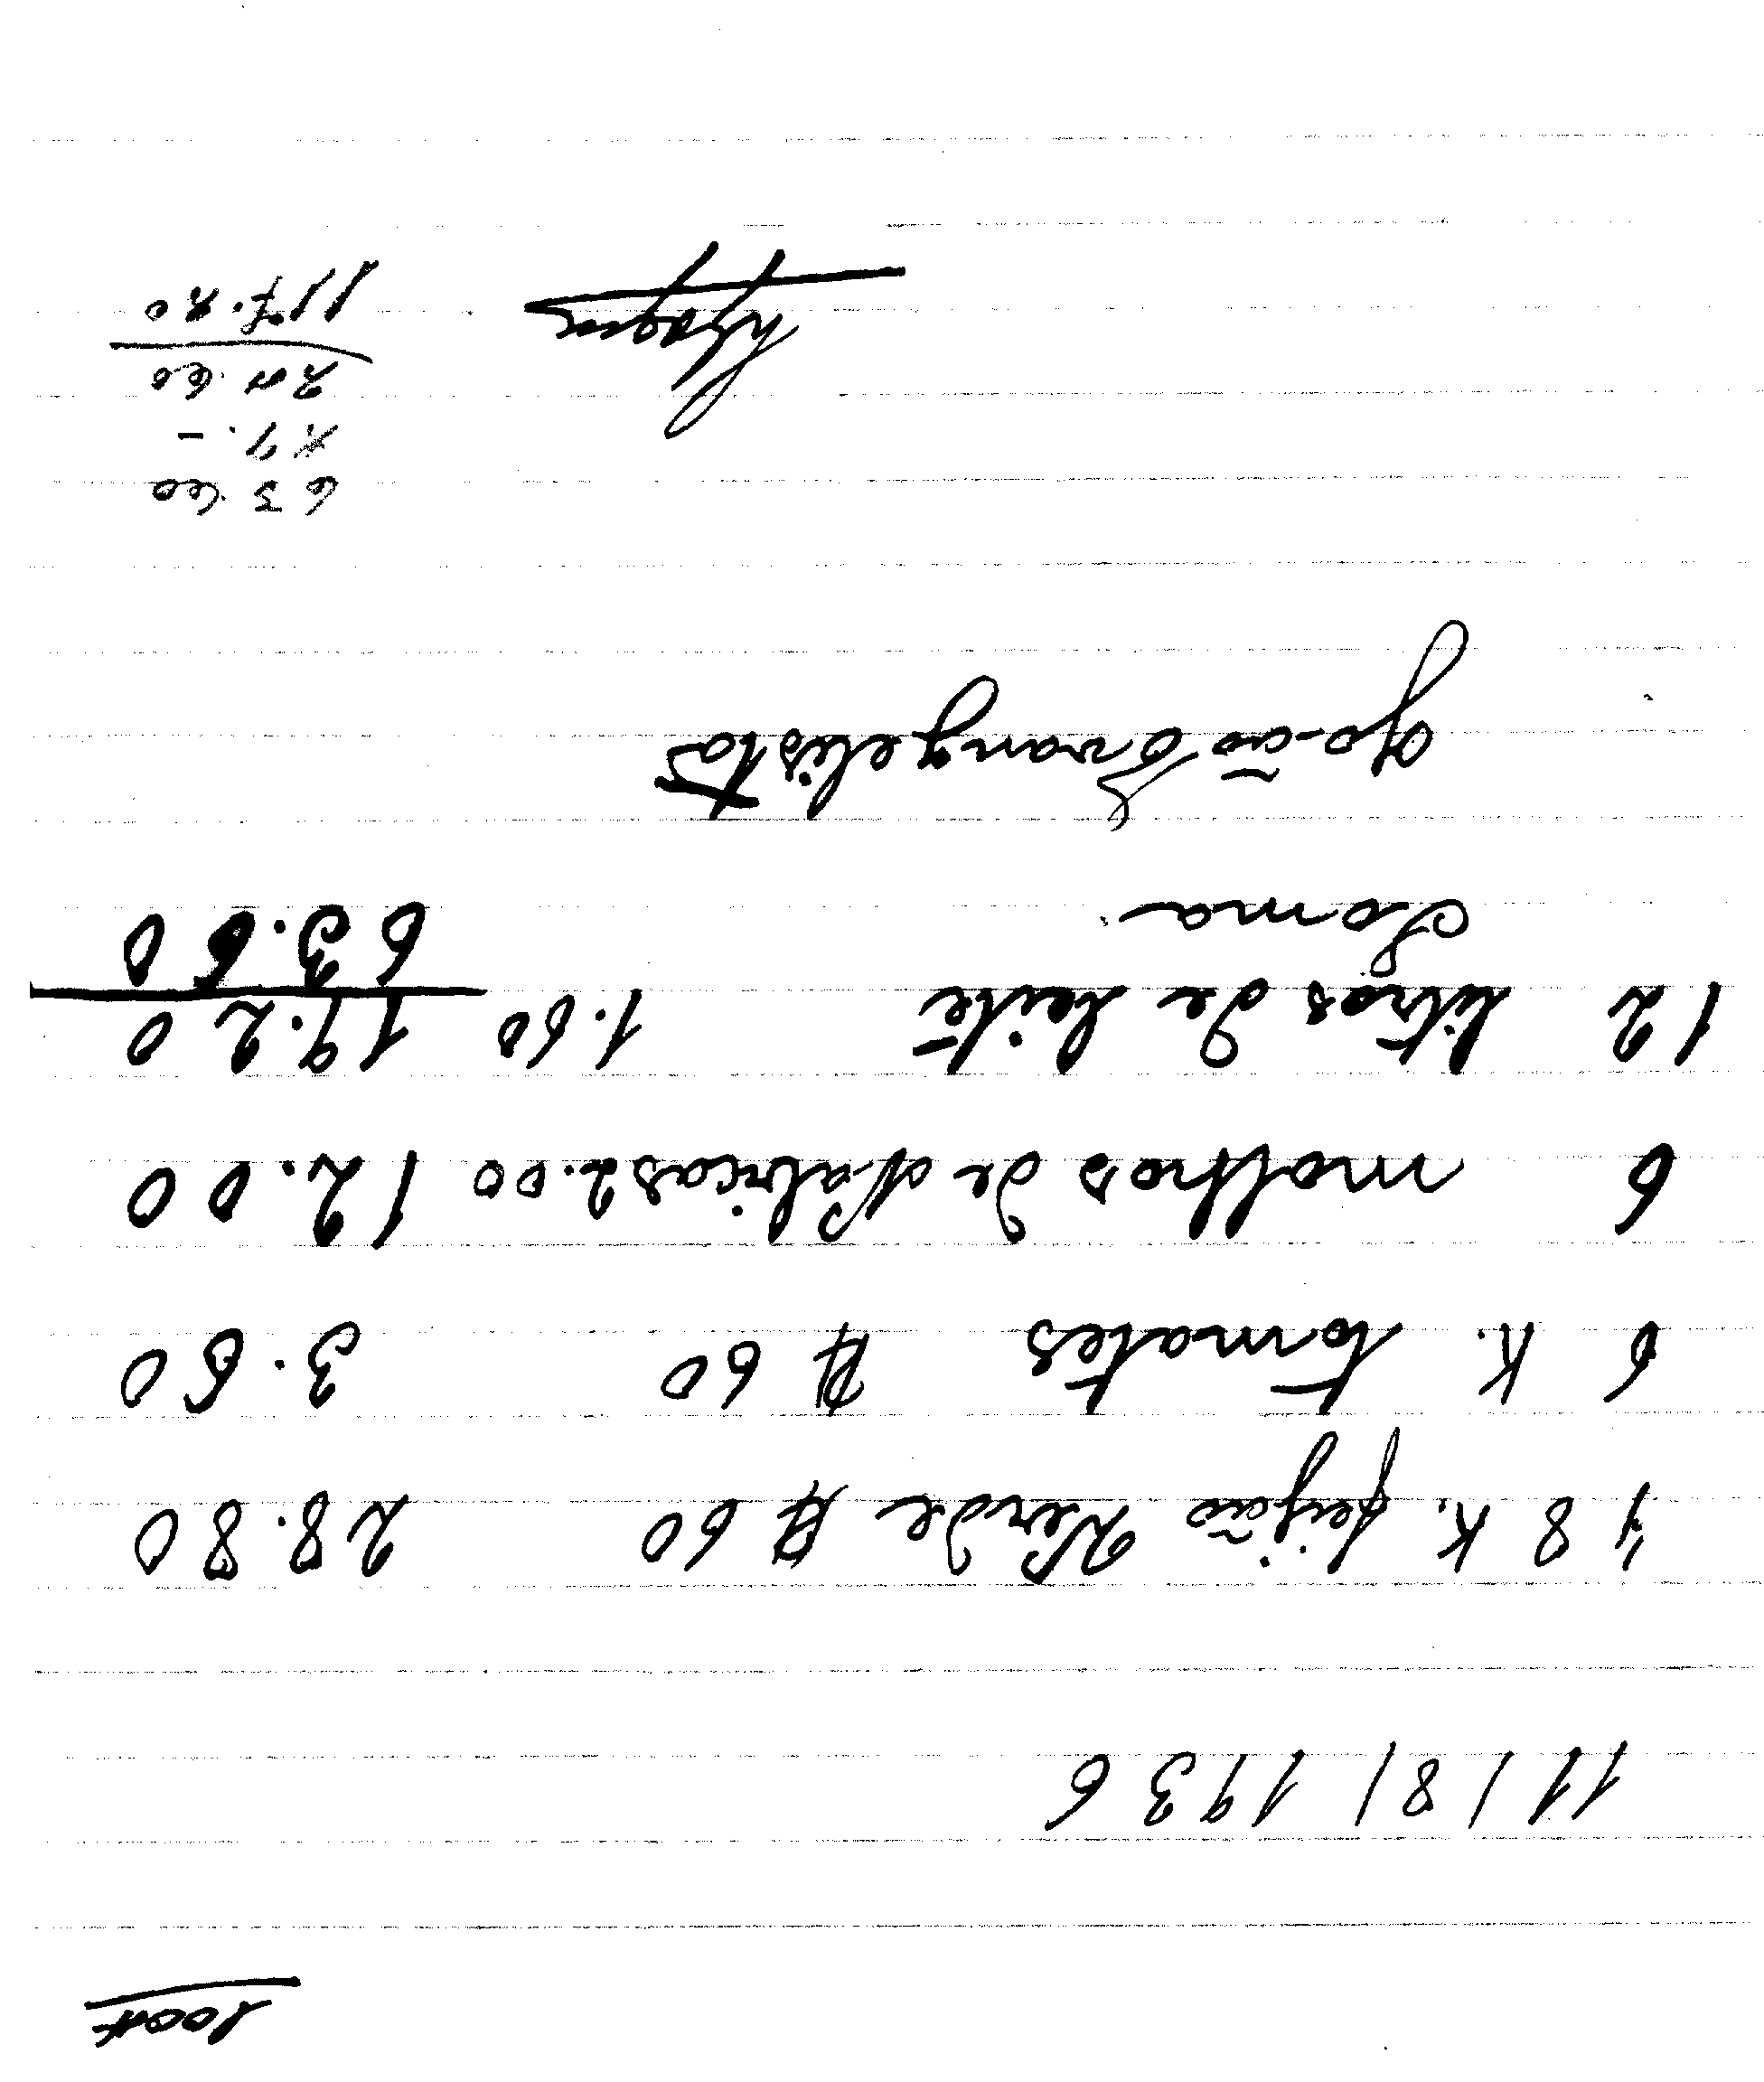 11/8/1936
48 K. feijão Verde $ 60 28.80
6 K. tomates $ 60 3.60
6 molhos de Nabiças 2.00 12.00
12 litros de leite 1.60 19.20
Soma 63.60
João Evangelista
63.60
27.-
26.60
117.20